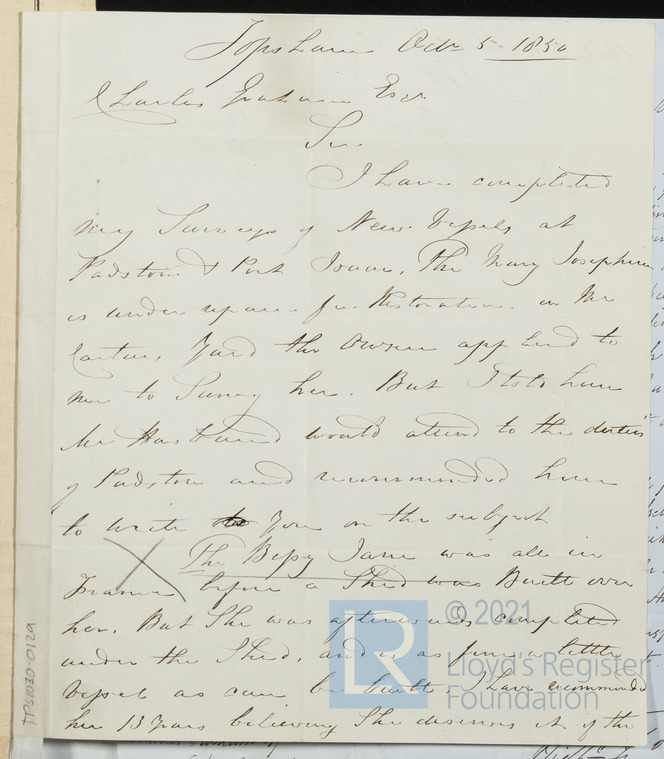 Topsham Octr 5 - 1850
Charles Graham Esqr
Sir.
I have completed
my Surveys of New Vessels at
Padstow & Port Isaac, The Mary Josephine
is under repair for Restoration in Mr
Yard the Owner applied to
me to Survey her. But I told him
Mr Husband would attend to the duties
of Padstow and recommended him
to write to You on the subject
The Bessy Jane was all in
Frame before a Shed was Built over
her. But She was afterwards completed
under the Shed, and is as fine a little
Vessel as can be built, I have recommended
her 13 Years believing She deserves it if the
TPS1030-0129
© 2021
LR
Lloyd's Register
Foundation